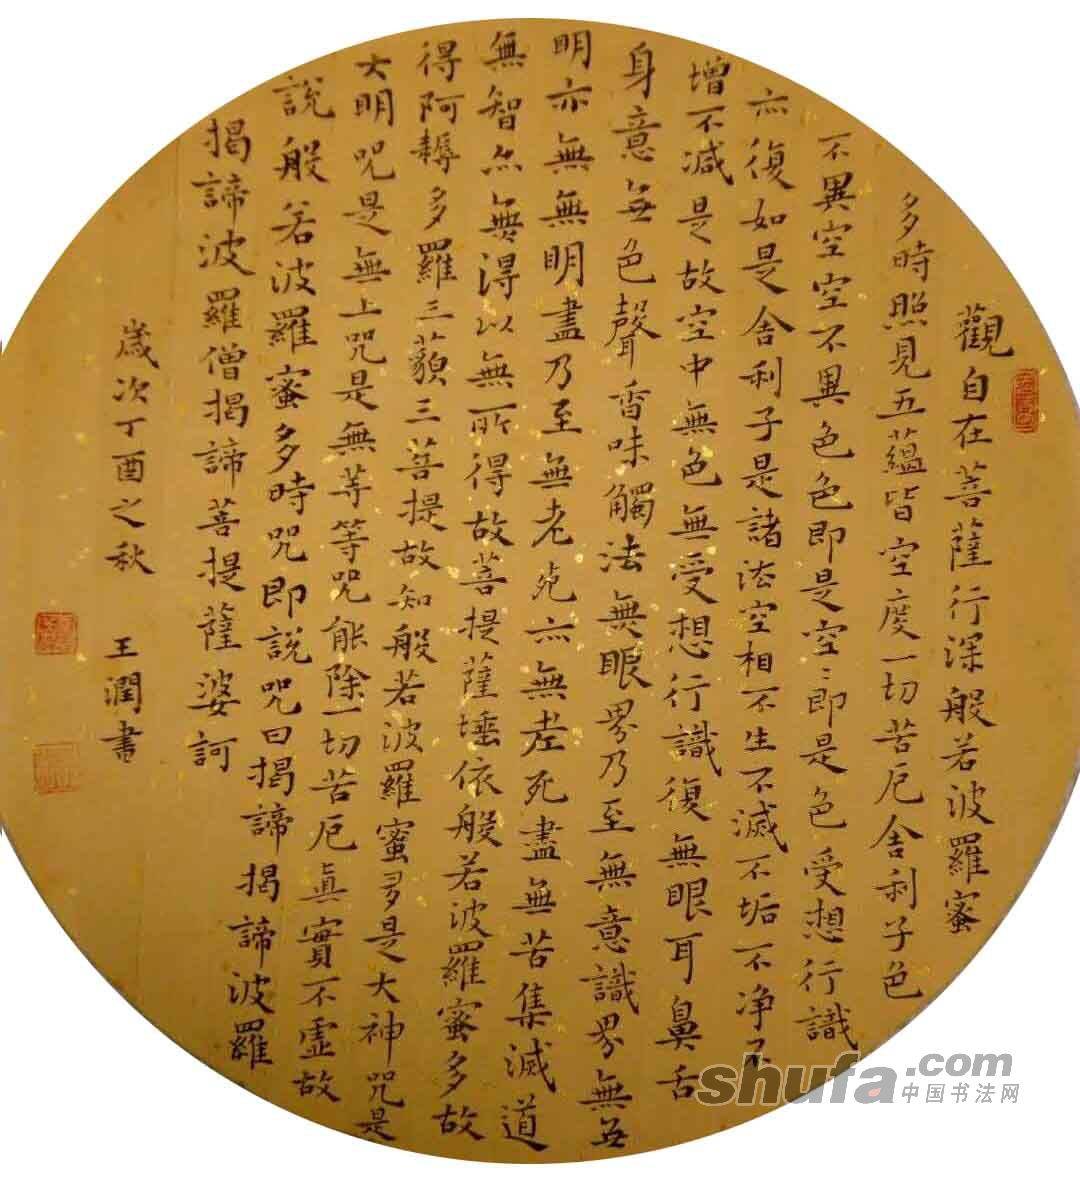 觀自在菩薩行深般若波羅蜜
多時照見五蘊皆空度一切苦厄舍利子色
不異空空不異色色即是空〻即是色受想行識
亦復如是舍利子是諸法空相不生不滅不垢不净不
增不減是故空中無色無受想行識復無眼耳鼻舌
身意无色聲香味觸法無眼界乃至無意識界無无
明亦無無明盡乃至無老死亦無老死盡無苦集滅道
無智亦無得以無所得故菩提薩埵依般若波羅蜜多故
得阿耨多羅三藐三菩提故知般若波羅蜜多是大神咒是
大明咒是無上咒是無等等咒能除一切苦厄真實不虛故
說般若波羅蜜多時咒即說咒曰揭諦揭諦波羅
揭諦波羅僧揭諦菩提薩婆訶
歲次丁酉之秋 王潤書
shufa.com
中国书法网